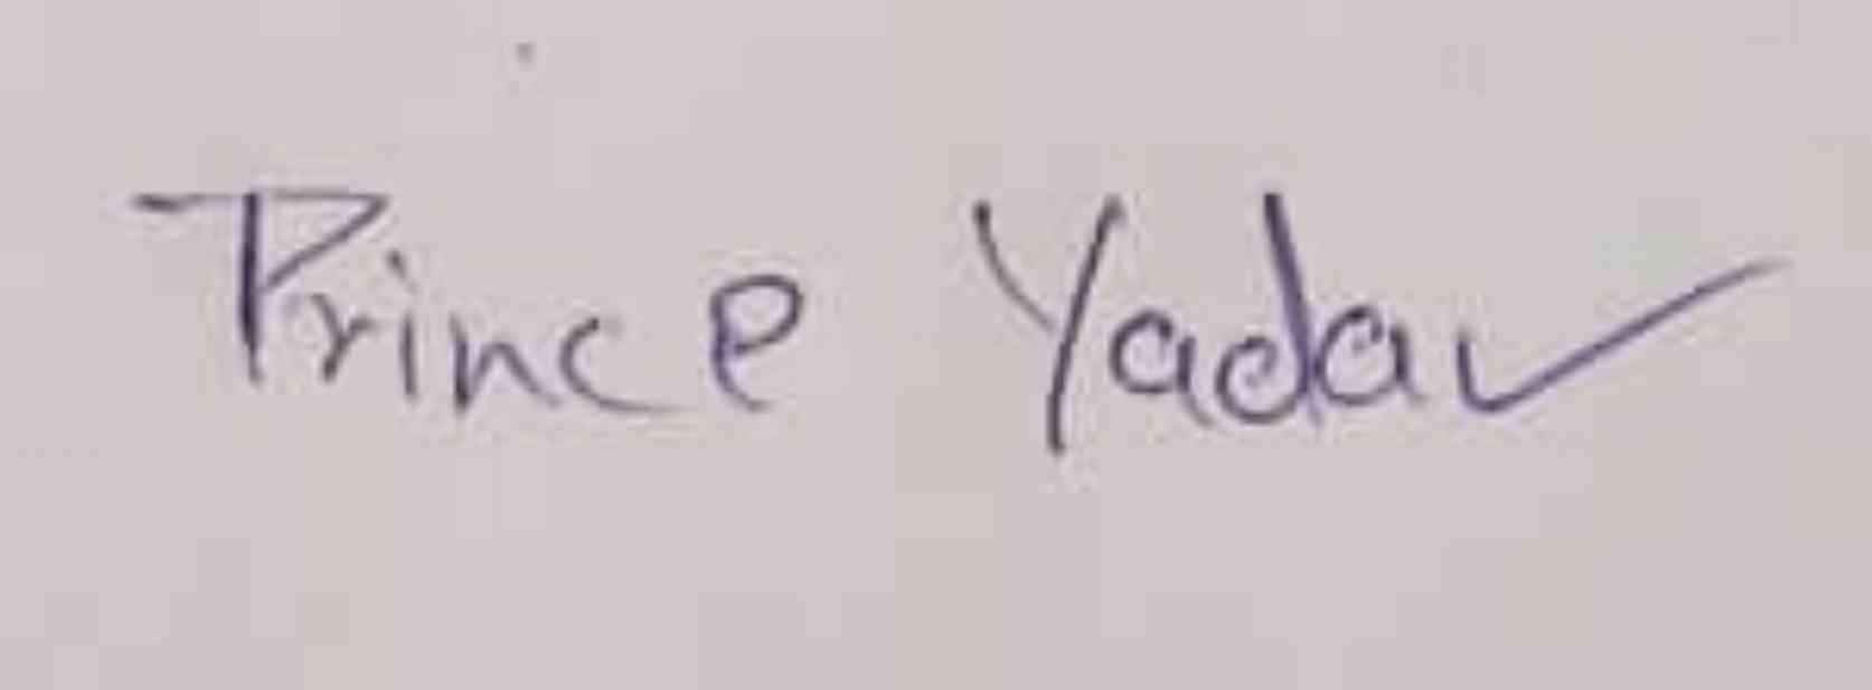 Prince Yadav